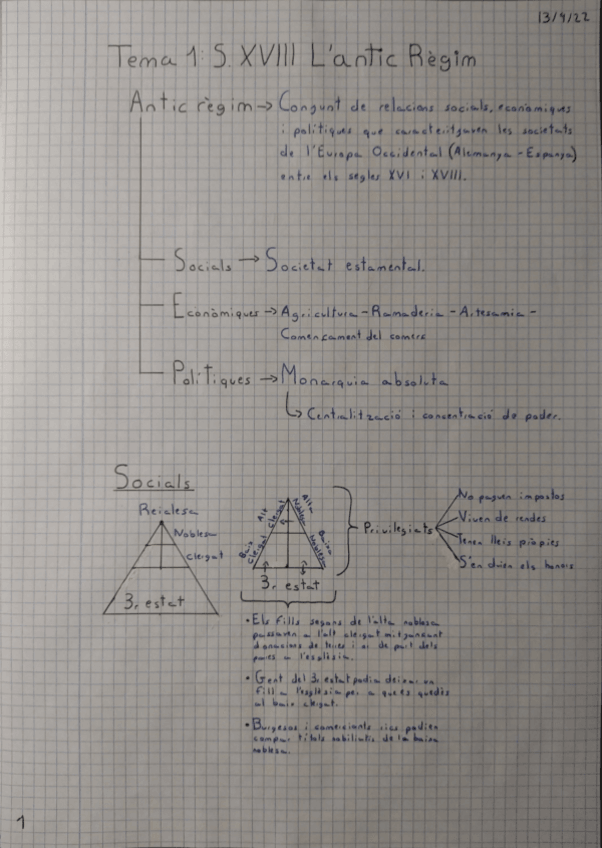 13/4/22
Tema 1: S. XVIII L'antic Règim
Antic règim → Conjunt de relacions socials, econòmiques
i polítiques que caracteritzaven les societats
de l'Europa Occidental (Alemanya - Espanya)
entre els segles XVI i XVIII.
Socials → Societat estamental.
Econòmiques → Agricultura - Ramaderia - Artesania -
Començament del comerç
Polítiques → Monarquia absoluta
↳ Centralització i concentració de poder.
Socials
Reialesa
Noblesa
clergat
3r estat
Alt clergat
Alta Noblesa
Baix clergat
Baixa Noblesa
3r estat
Privilegiats
No paguen impostos
Viuen de rendes
Tenen lleis pròpies
S'en duien els honors
• Els fills segons de l'alta noblesa
passaven a l'alt clergat mitjançant
donacions de terres i or de part dels
pares a l'església.
• Gent del 3r estat podia deixar un
fill a l'església per a que es quedés
al baix clergat.
• Burgesos i comerciants rics podien
comprar títols nobiliaris de la baixa
noblesa.
1